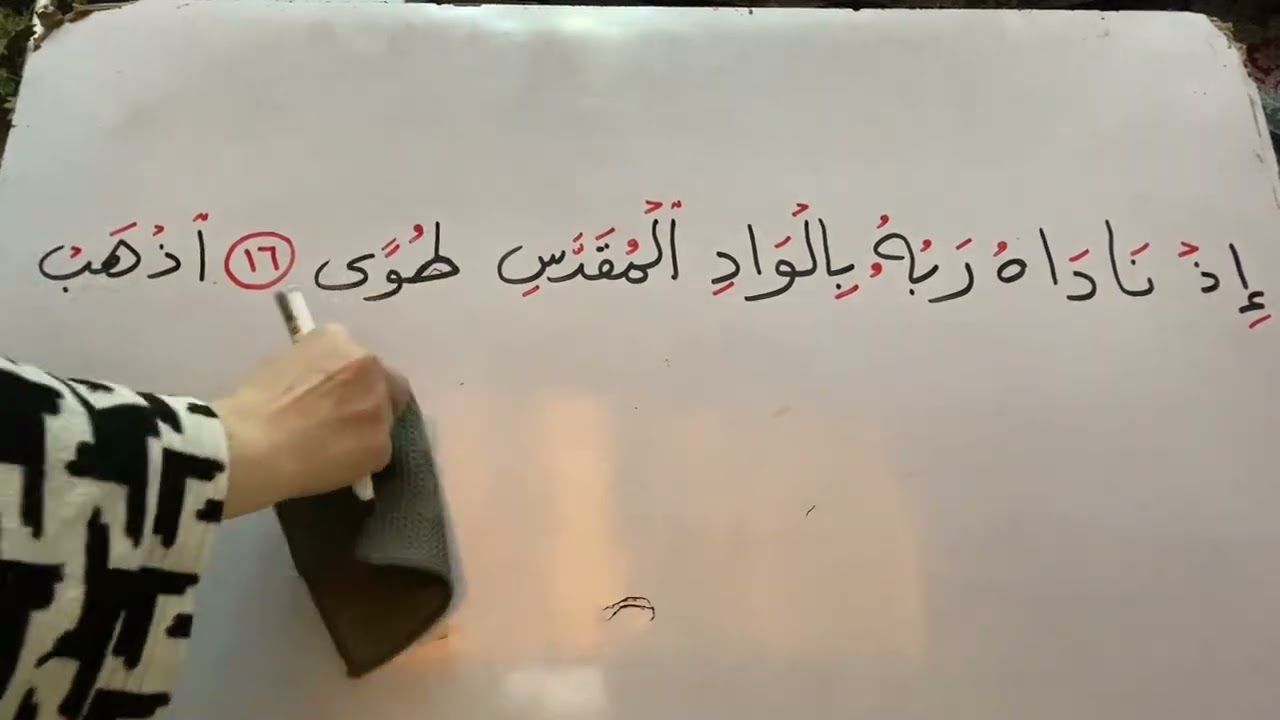 إِذْ نَادَاهُ رَبُّهُۥ بِالْوَادِ ٱلْمُقَدَّسِ طُوًى ١٦ ٱذْهَبْ